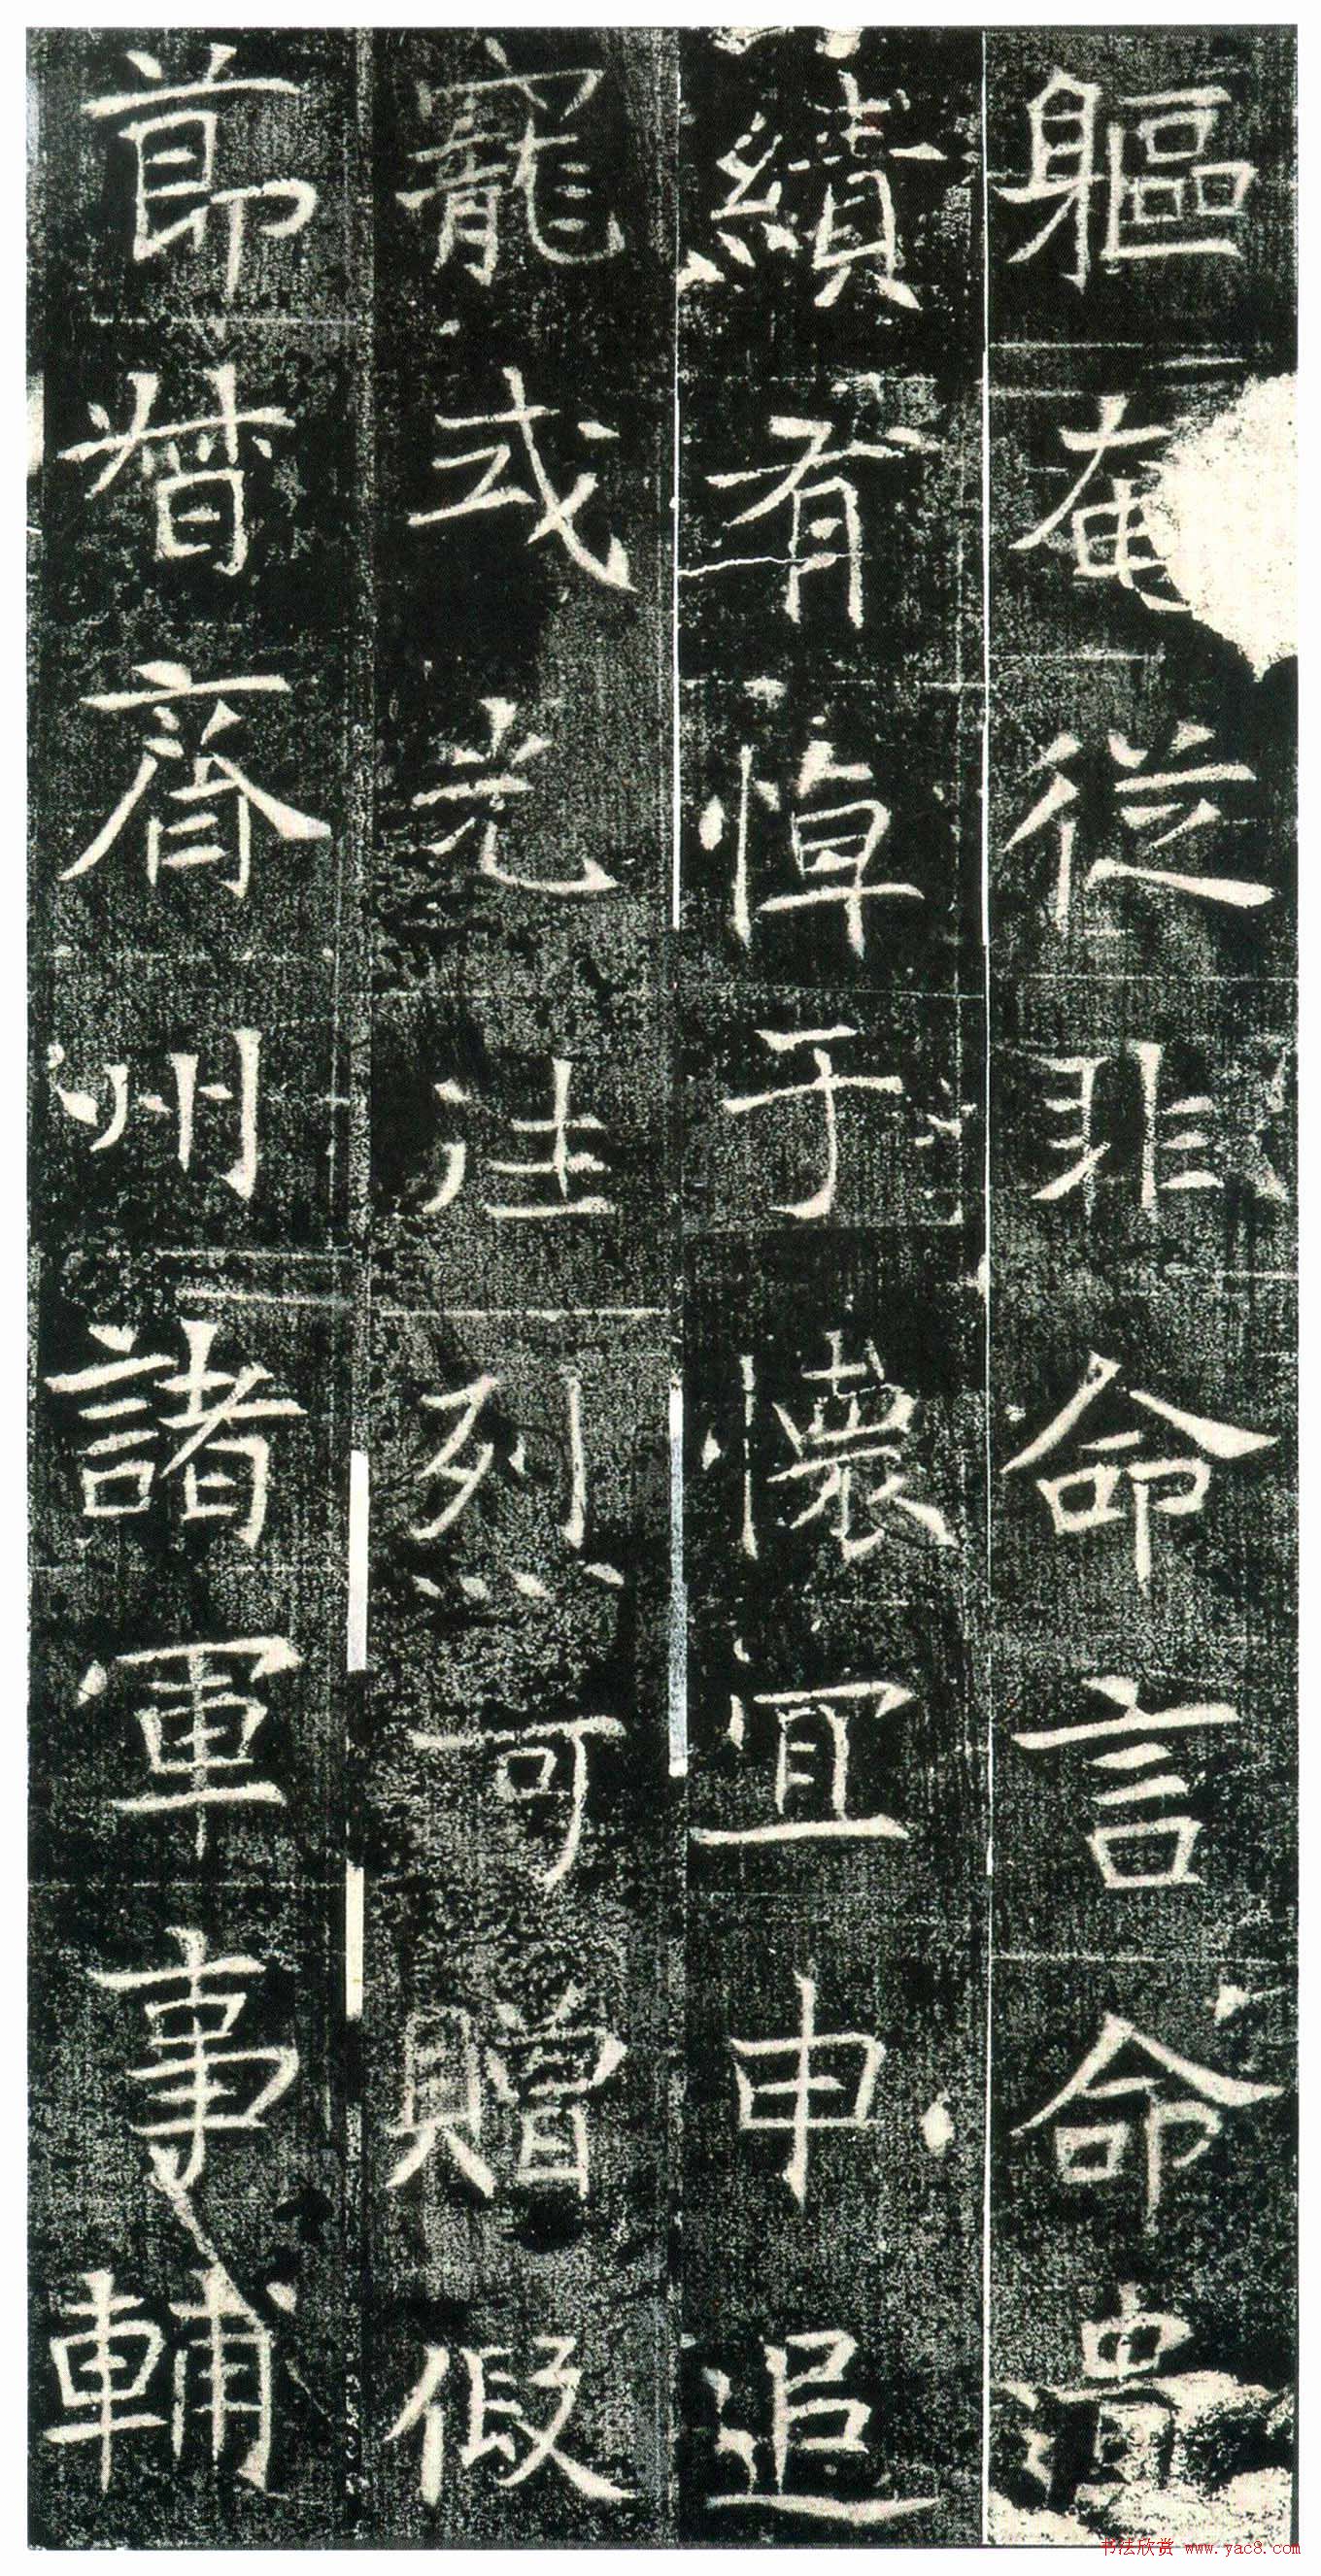 軀奄從非命言命遺
績有悼于懷宜申追
寵式光注烈可贈假
節督齊州諸軍事輔
书法欣赏 www.yac8.com